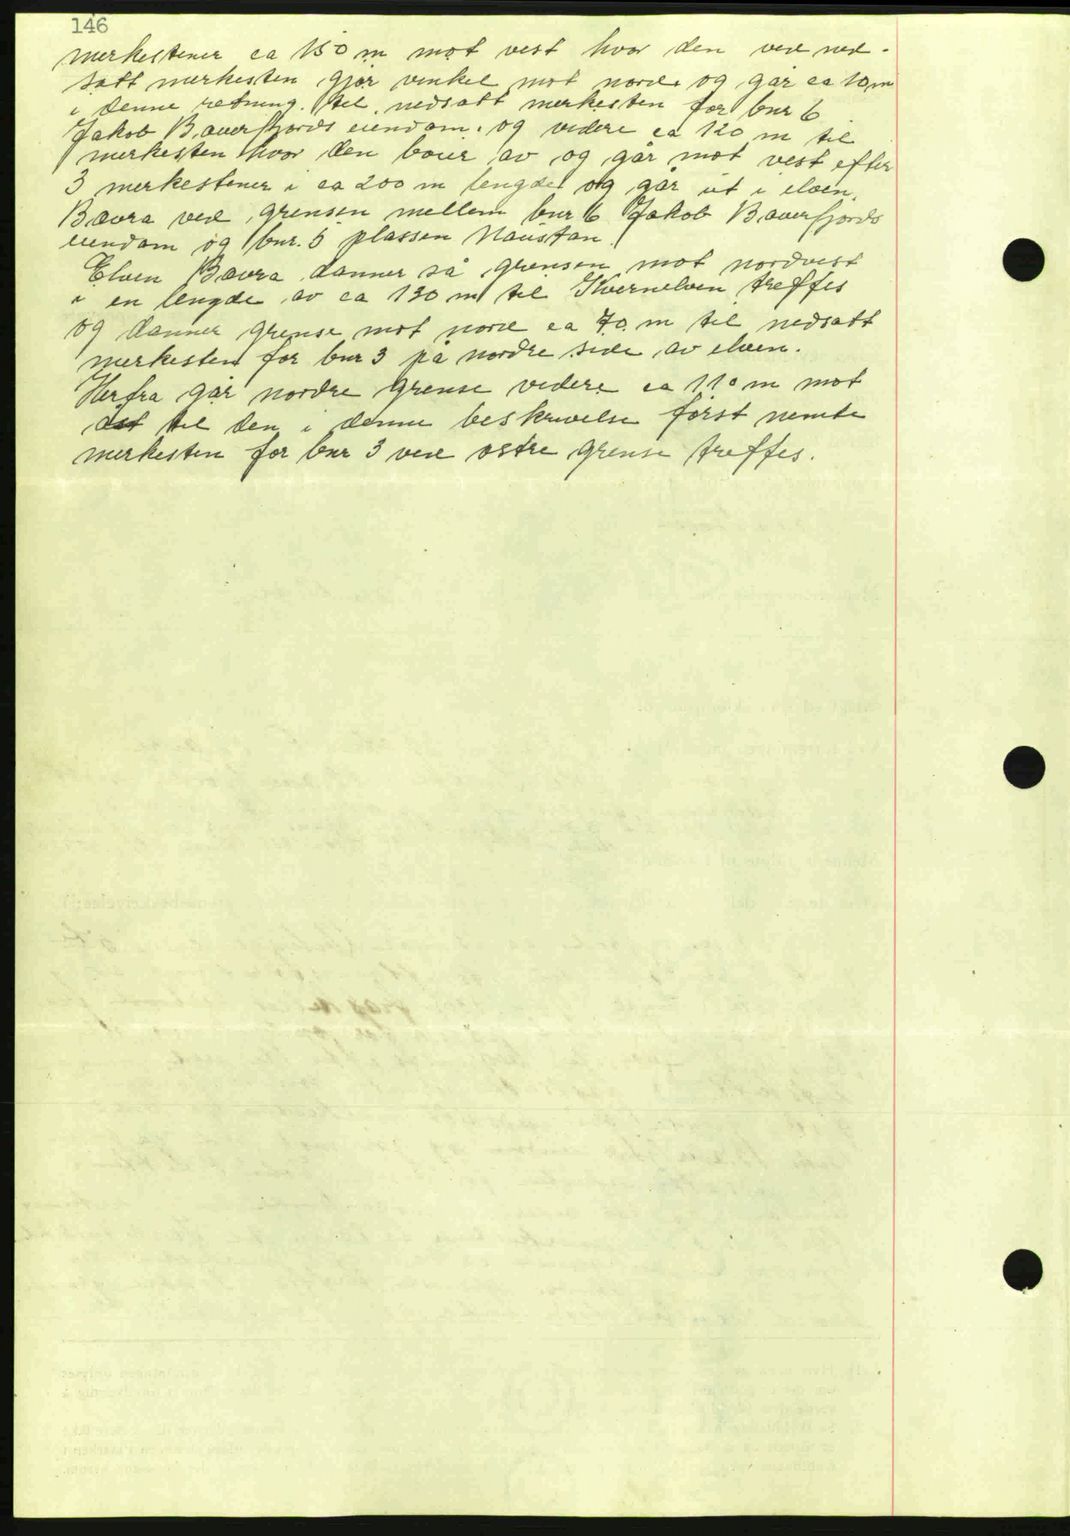 146
merkestener ca 150 m mot vest hvor den ved ned-
satt merkesten gjør vinkel mot nord og går ca 10 m
i denne retning til nedsatt merkesten for bnr 6
Jakob Bæverfjords eiendom, og videre ca 120 m til
merkesten hvor den boier av og går mot vest efter
3 merkestener i ca 200 m lengde og går ut i elven
Bævra ved grensen mellem bnr 6 Jakob Bæverfjords
eiendom og bnr. 5 plassen Naustan.
Elven Bævra danner så grensen mot nordvest
i en lengde av ca 130 m til Kvernelven treffes
og danner grense mot nord ca 70 m til nedsatt
merkesten for bnr 3 på nordre side av elven.
Herfra går nordre grense videre ca 110 m mot
øst til den i denne beskrivelse først nemte
merkesten for bnr 3 ved østre grense treffes.